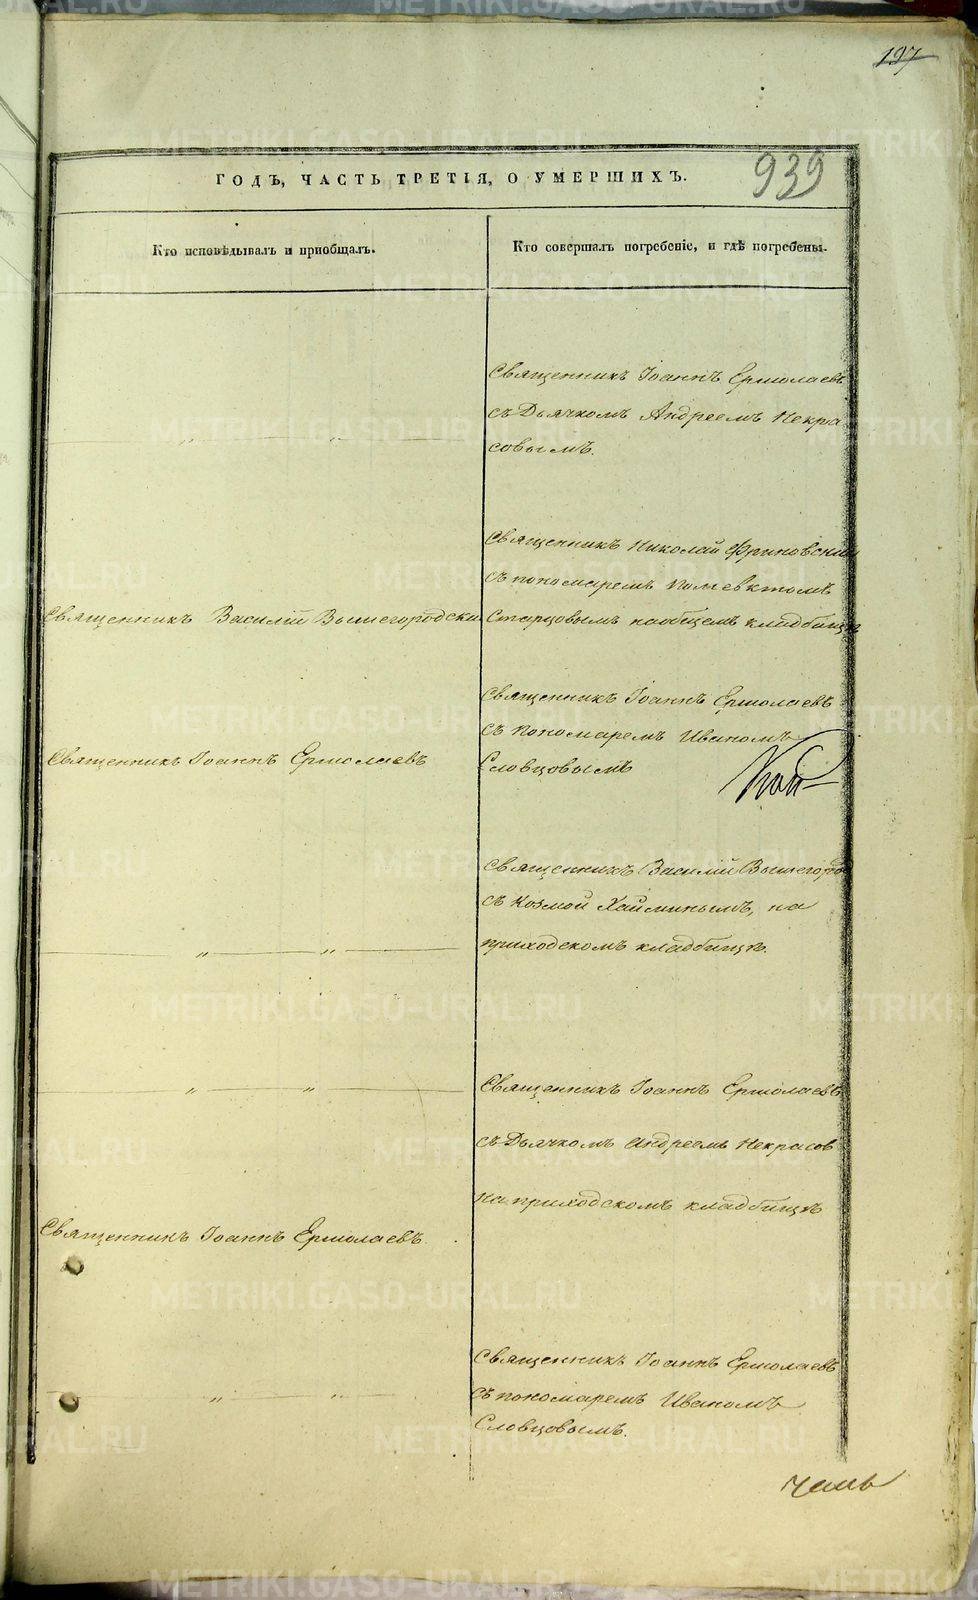 197
939
ГОДЪ, ЧАСТЬ ТРЕТІЯ, О УМЕРШИХЪ.
Кто исповѣдывалъ и приобщалъ.
Кто совершалъ погребеніе, и гдѣ погребены.
Священникъ Іоаннъ Ермолаевъ
съ Дьячкомъ Андреемъ Некра
совымъ.
Священникъ Николай
съ пономаремъ Полиевктомъ
Священникъ Василій Вышегородскій
Старцовымъ на общемъ кладбищѣ
Священникъ Іоаннъ Ермолаевъ
съ пономаремъ Иваномъ
Священникъ Іоаннъ Ермолаевъ
Словцовымъ
Священникъ Василій Вышегород
съ Козмой Хайминымъ, на
приходскомъ кладбищѣ.
Священникъ Іоаннъ Ермолаевъ
съ Дьячкомъ Андреемъ Некрасов
на приходскомъ кладбищѣ
Священникъ Іоаннъ Ермолаевъ.
Священникъ Іоаннъ Ермолаевъ
съ пономаремъ Иваномъ
Словцовымъ.
METRIKI.GASO-URAL.RU